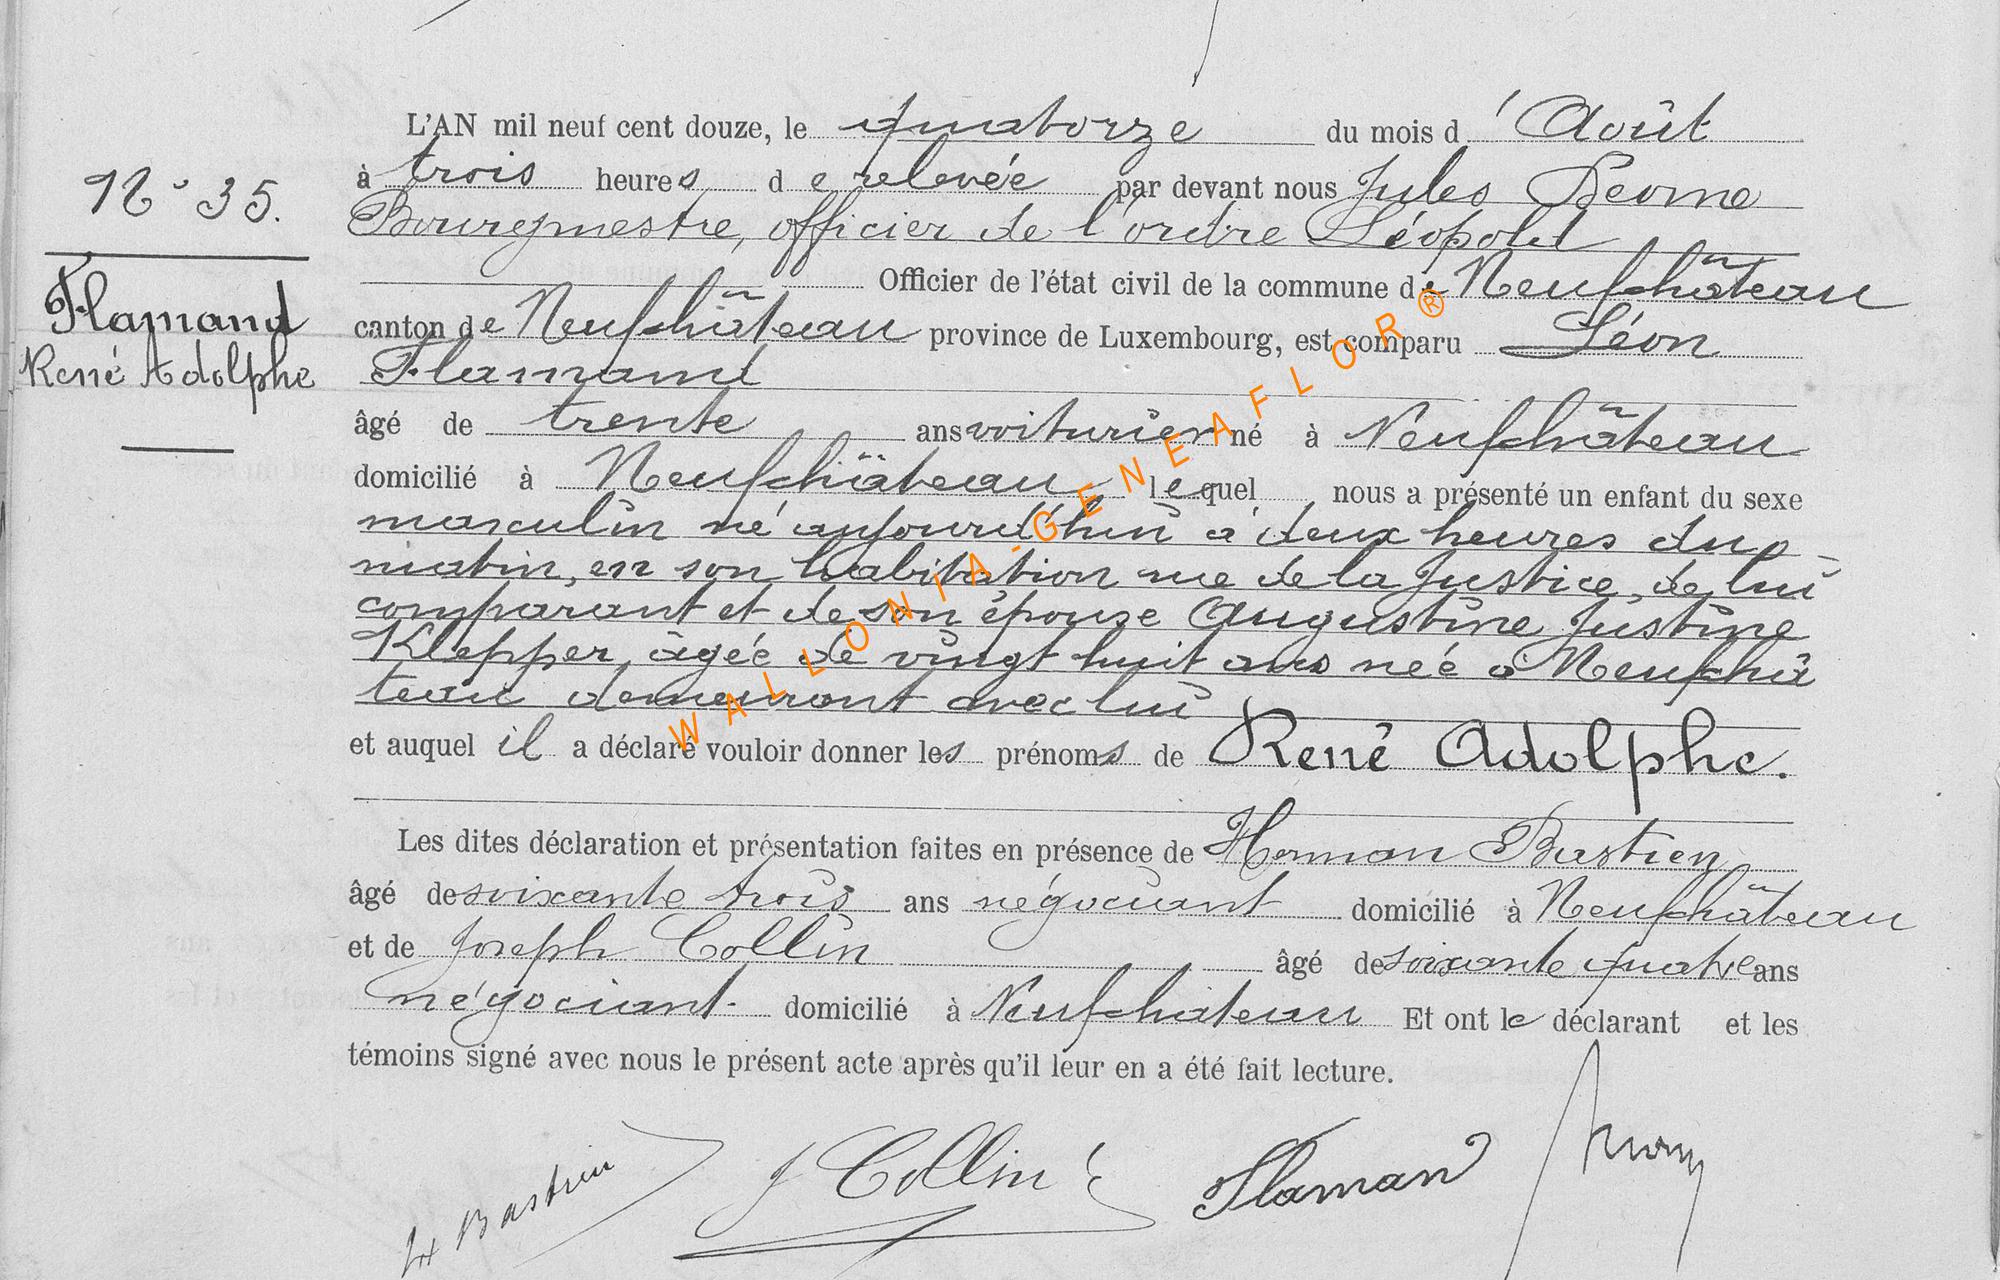 L'AN mil neuf cent douze, le quatorze du mois d'Août
N° 35.
à trois heures de relevée par devant nous Jules
Bourgmestre, officier de l'ordre Léopold
Officier de l'état civil de la commune de Neufchâteau
Flamand
René Adolphe
canton de Neufchâteau province de Luxembourg, est comparu Léon
Flamand
âgé de trente ans voiturier né à Neufchâteau
domicilié à Neufchâteau, lequel nous a présenté un enfant du sexe
masculin né aujourd'hui à deux heures du
matin, en son habitation rue de la Justice, de lui
comparant et de son épouse Augustine Justine
Klepper, âgée de vingt huit ans née à Neufchâ
teau demeurant avec lui
et auquel il a déclaré vouloir donner les prénoms de René Adolphe.
Les dites déclaration et présentation faites en présence de Herman Bastien
âgé de soixante trois ans négociant domicilié à Neufchâteau
et de Joseph Collin âgé de soixante quatre ans
négociant domicilié à Neufchâteau Et ont le déclarant et les
témoins signé avec nous le présent acte après qu'il leur en a été fait lecture.
H Bastien
J Collin
Flamand
WALLONIA-GENEAFLOR®